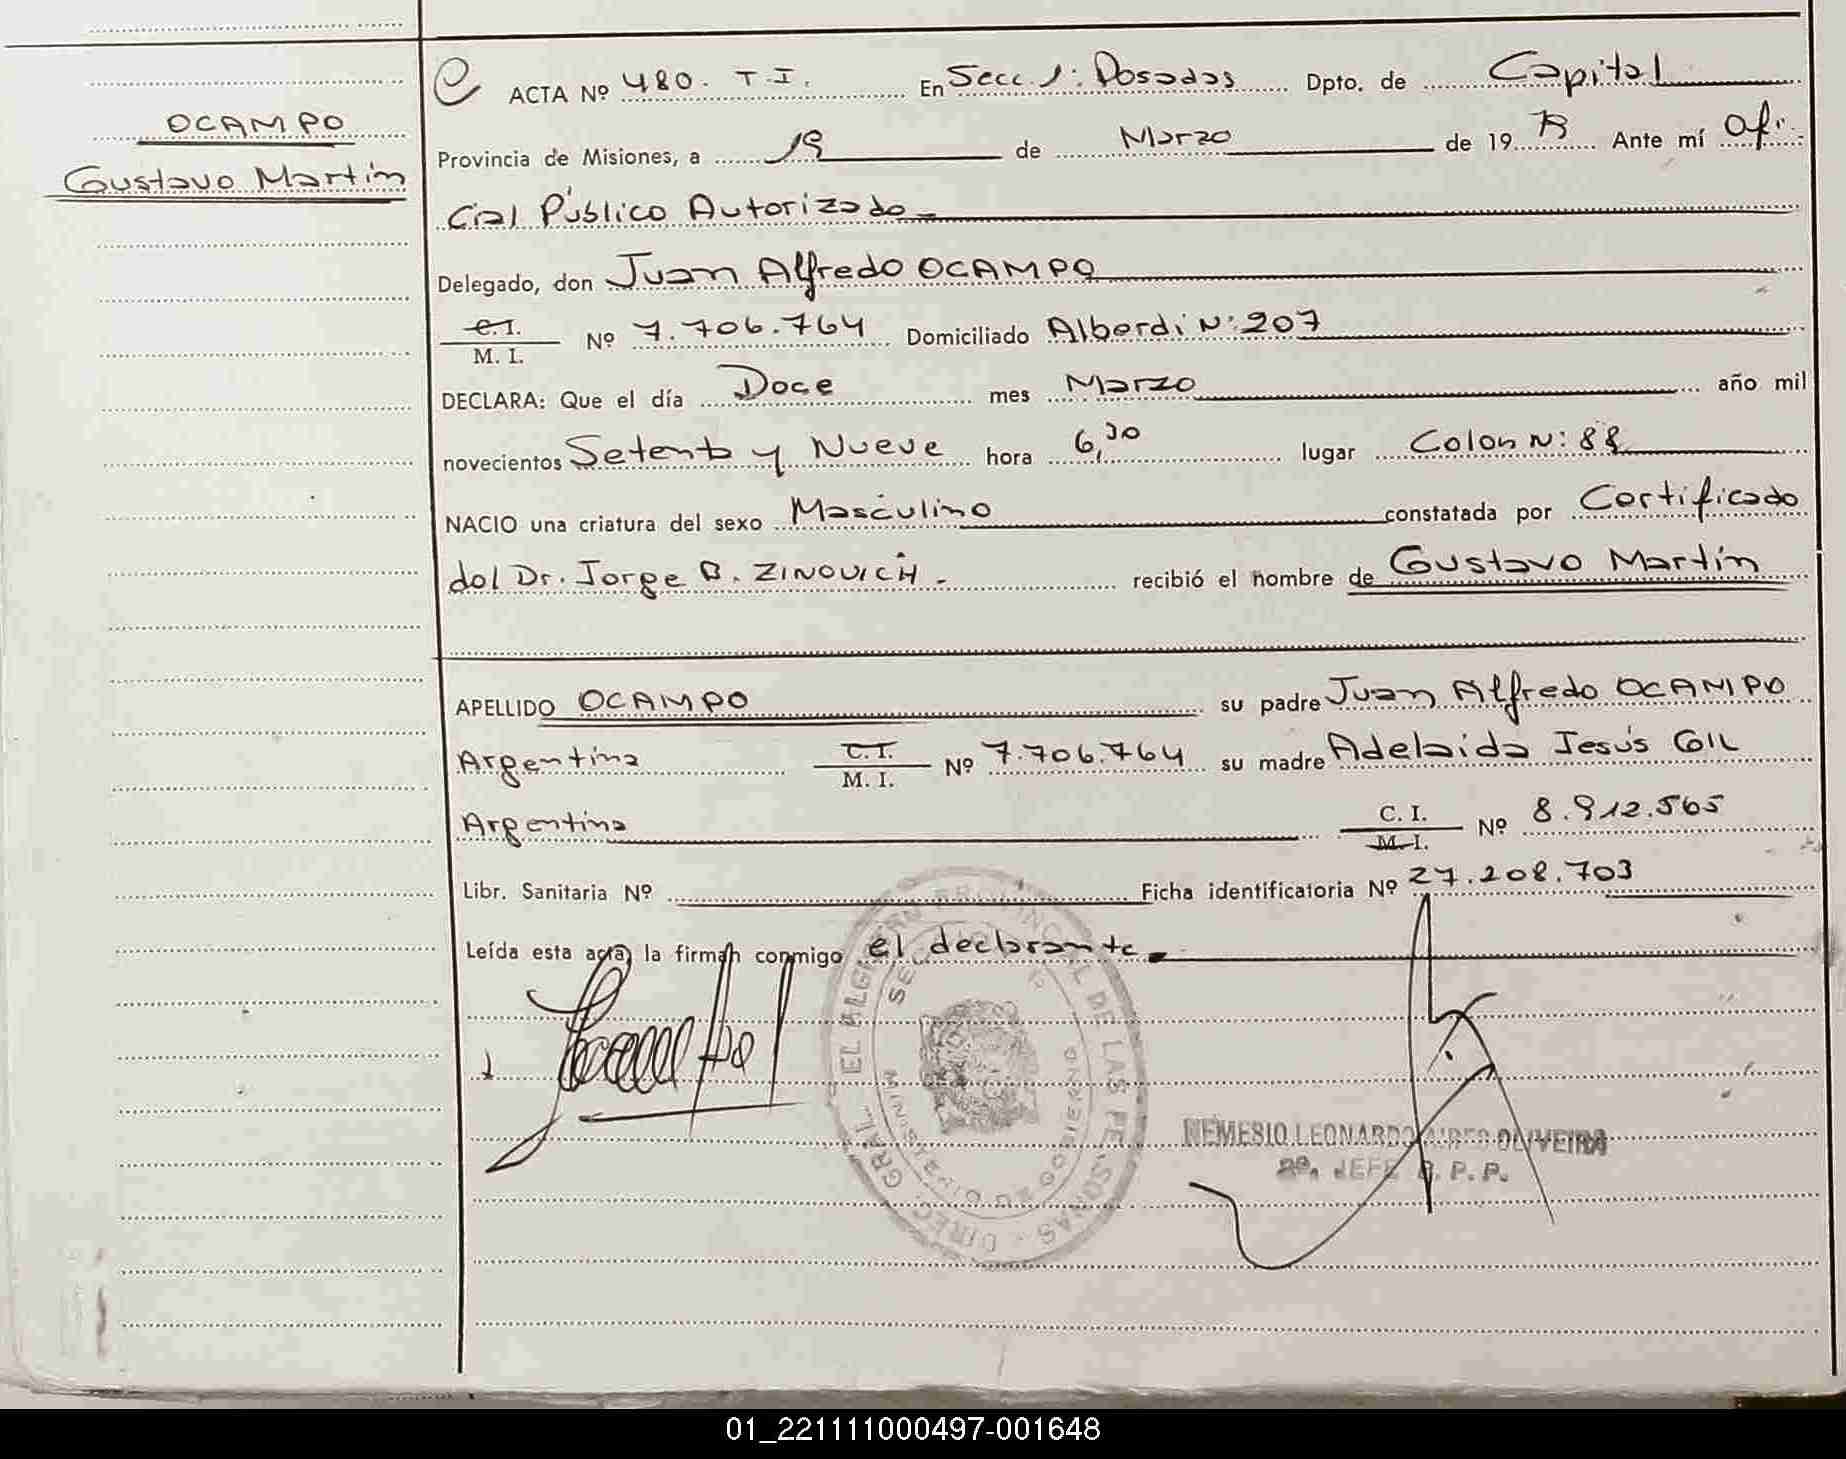 OCAMPO
Gustavo Martín
ACTA Nº 480. T.I. En Secc 1: Posadas Dpto. de Capital
Provincia de Misiones, a 19 de Marzo de 1979 Ante mí Ofi-
cial Público Autorizado
Delegado, don Juan Alfredo OCAMPO
C.I.
M. I. Nº 7.706.764 Domiciliado Alberdi N: 207
DECLARA: Que el día Doce mes Marzo año mil
novecientos Setenta y Nueve hora 6,30 lugar Colon N: 88
NACIO una criatura del sexo Masculino constatada por Certificado
del Dr. Jorge B. ZINOVICH - recibió el nombre de Gustavo Martín
APELLIDO OCAMPO su padre Juan Alfredo OCAMPO
Argentina C.I. M. I. Nº 7.706.764 su madre Adelaida Jesús GIL
Argentina C. I. M. I. Nº 8.912.565
Libr. Sanitaria Nº Ficha identificatoria Nº 27.208.703
Leída esta acta, la firman conmigo el declarante
DIREC. GRAL. EL ALG PROVINCIAL DE LAS PERSONAS
MINISTERIO DE GOBIERNO
NEMESIO LEONARDO AIRES OLIVEIRA
2º. JEFE R. P. P.
01_221111000497-001648